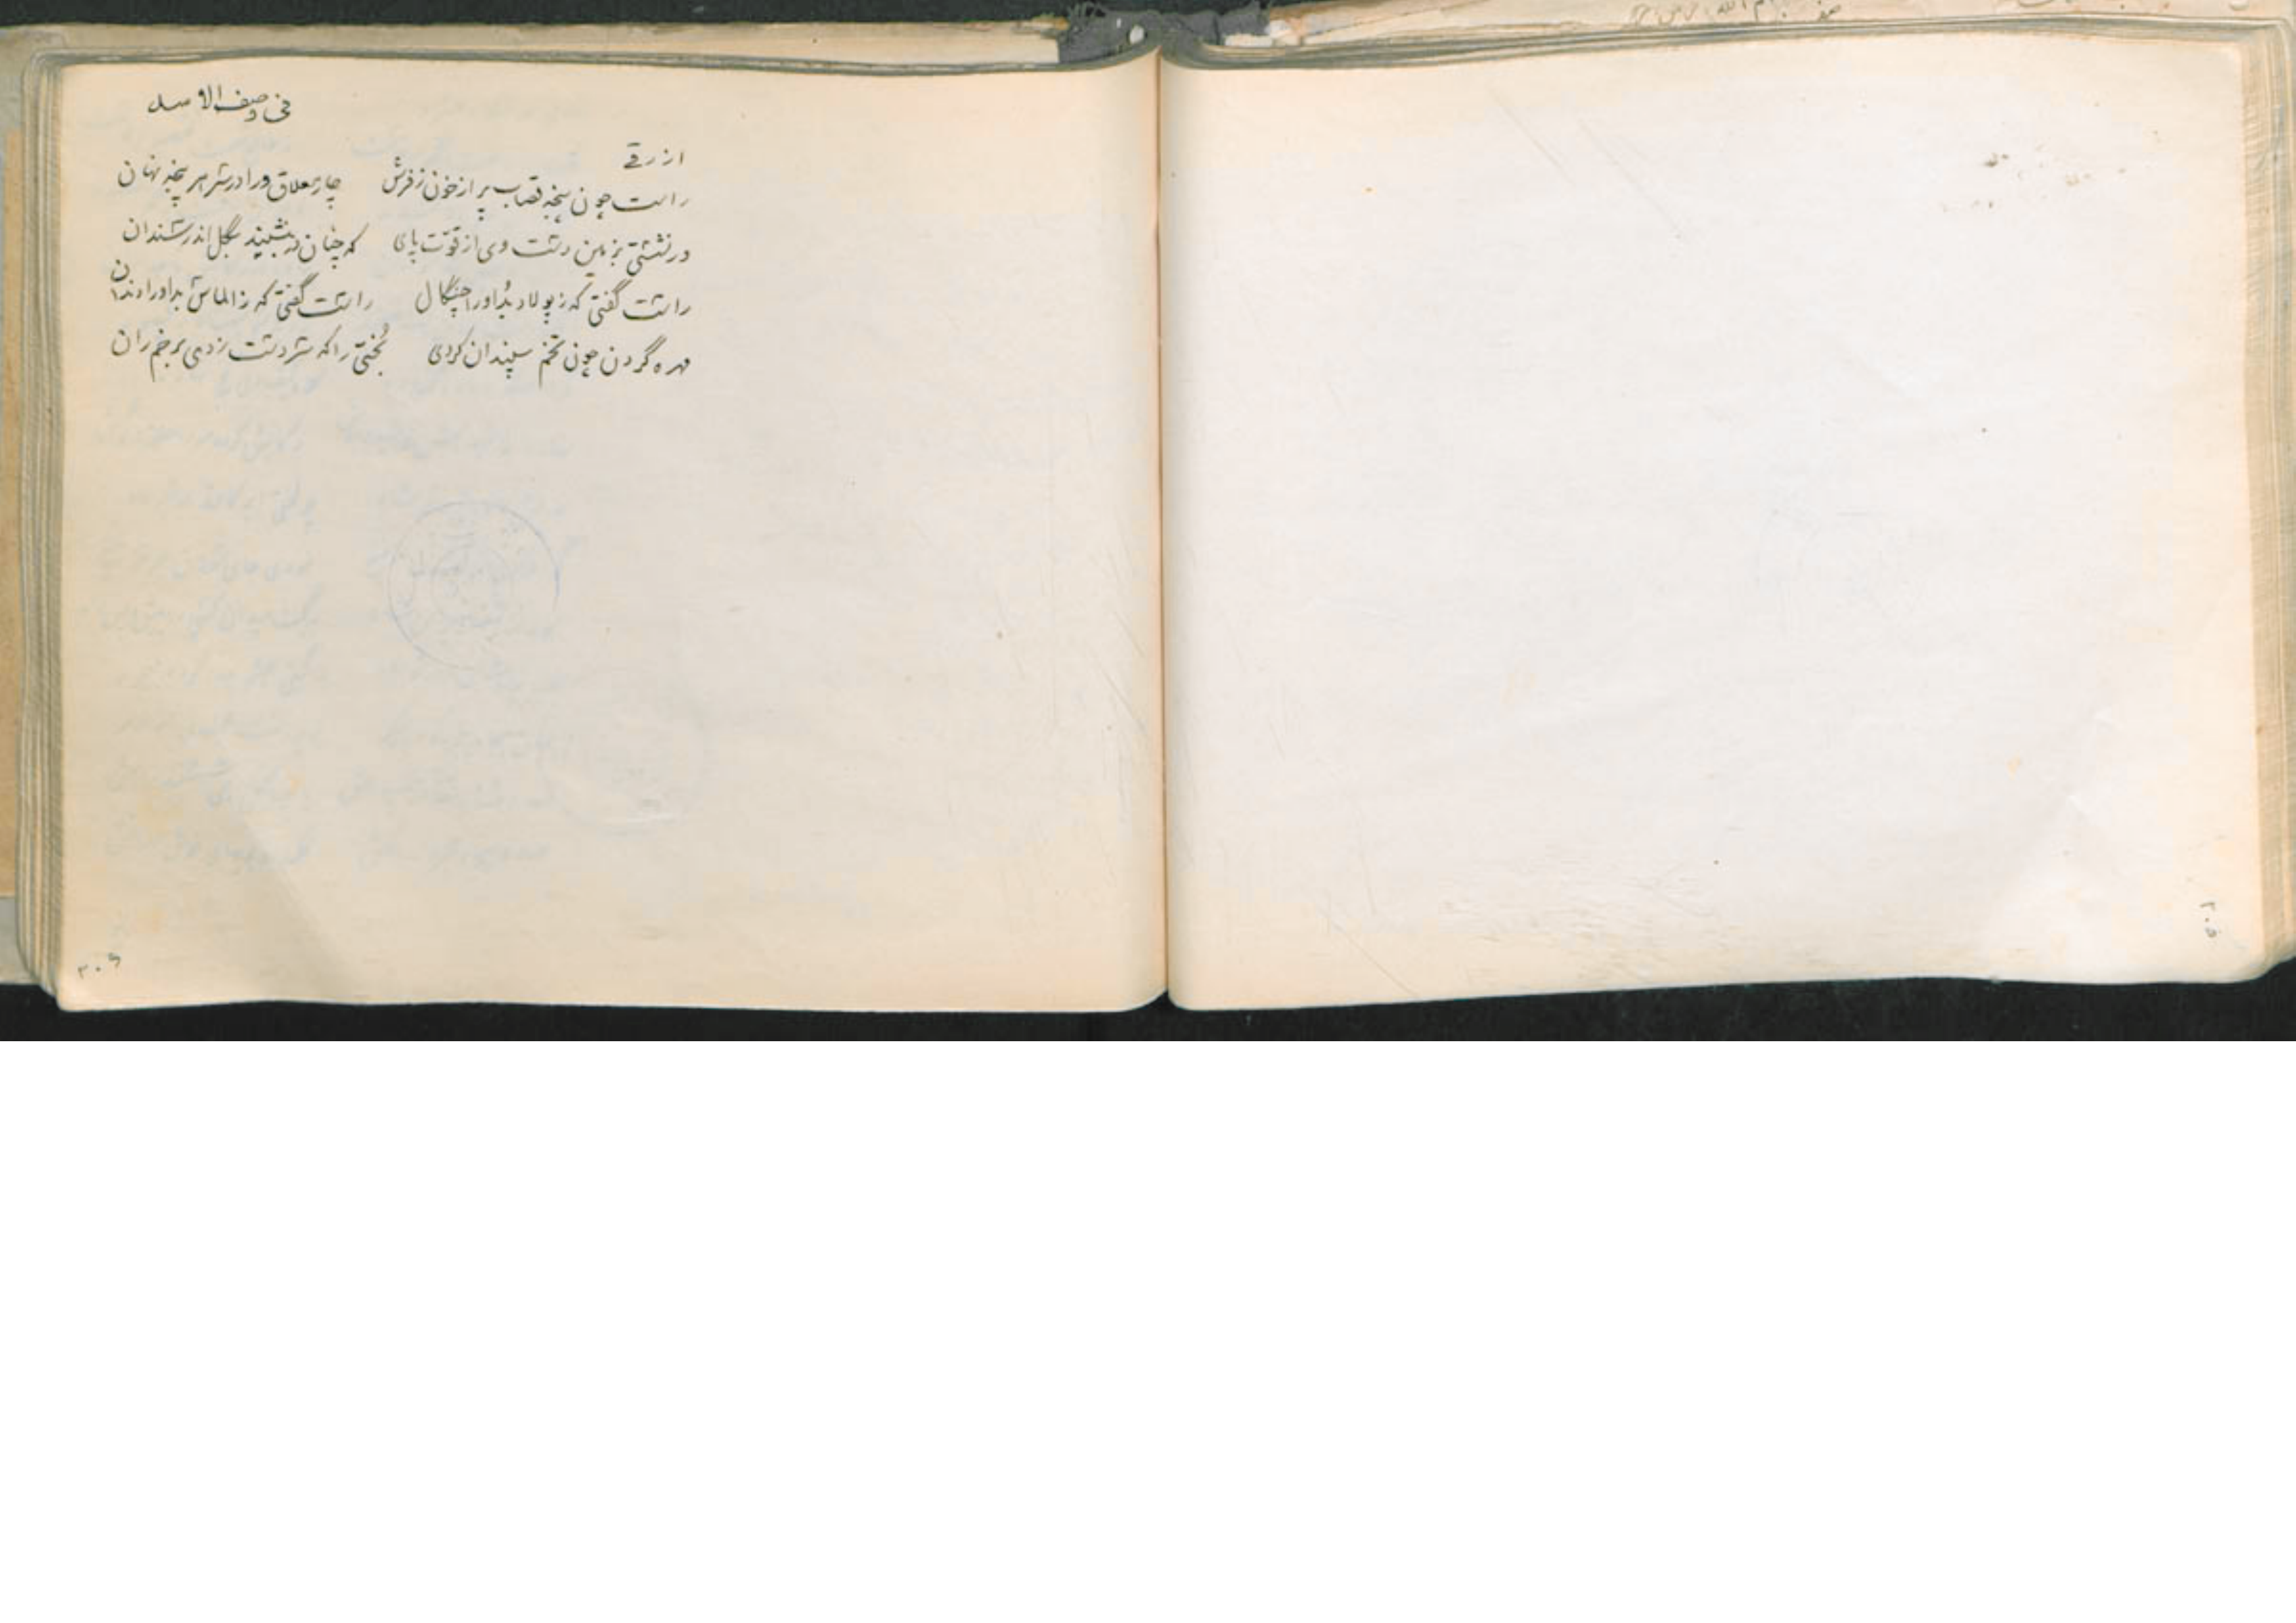 فی وصف الاسد
ازرقی
راست چون پنجه قصاب پر از خون ز فرش چار معلاق ورا در سر هر پنجه نهان
در نشستی بزمین دست وی از قوت پای که چنان نه نشیند بگل اندر سندان
راست گفتی که ز پولاد بد اورا چنگال راست گفتی که ز الماس بد اورا دندان
مهره گردن چون تخم سپندان کردی بختی را که سر دست زدی بر خم ران
۲۰۶
۲۰۵